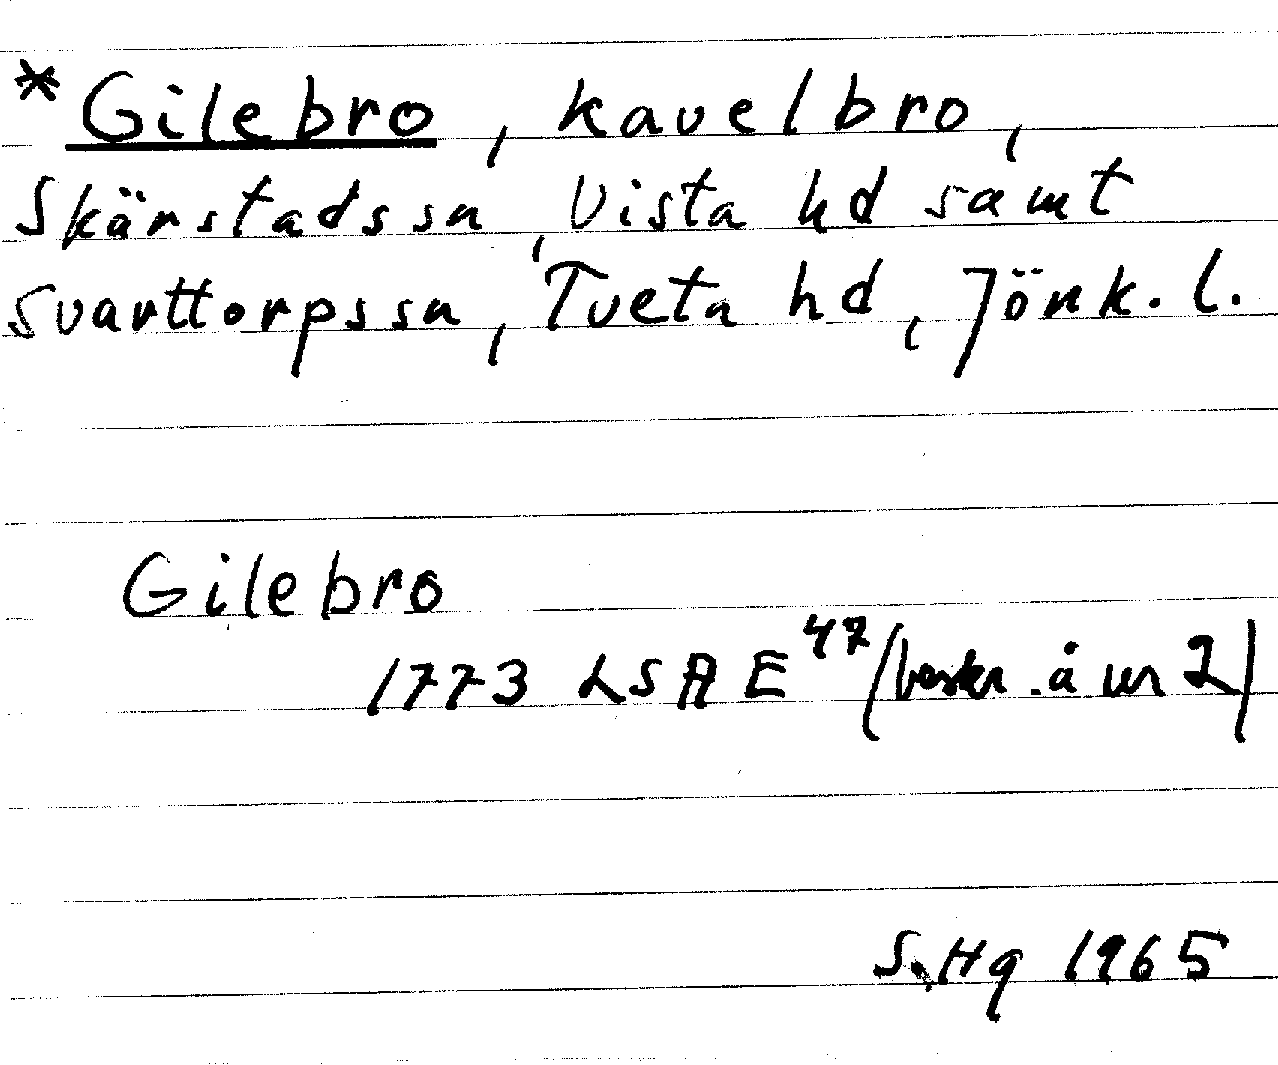 *Gilebro, kavelbro,
Skärstads sn, Vista hd samt
Svarttorps sn, Tveta hd, Jönk. l.
Gilebro
1773 LSA E 47 (beskr. å nr 2)
S. Hg 1965